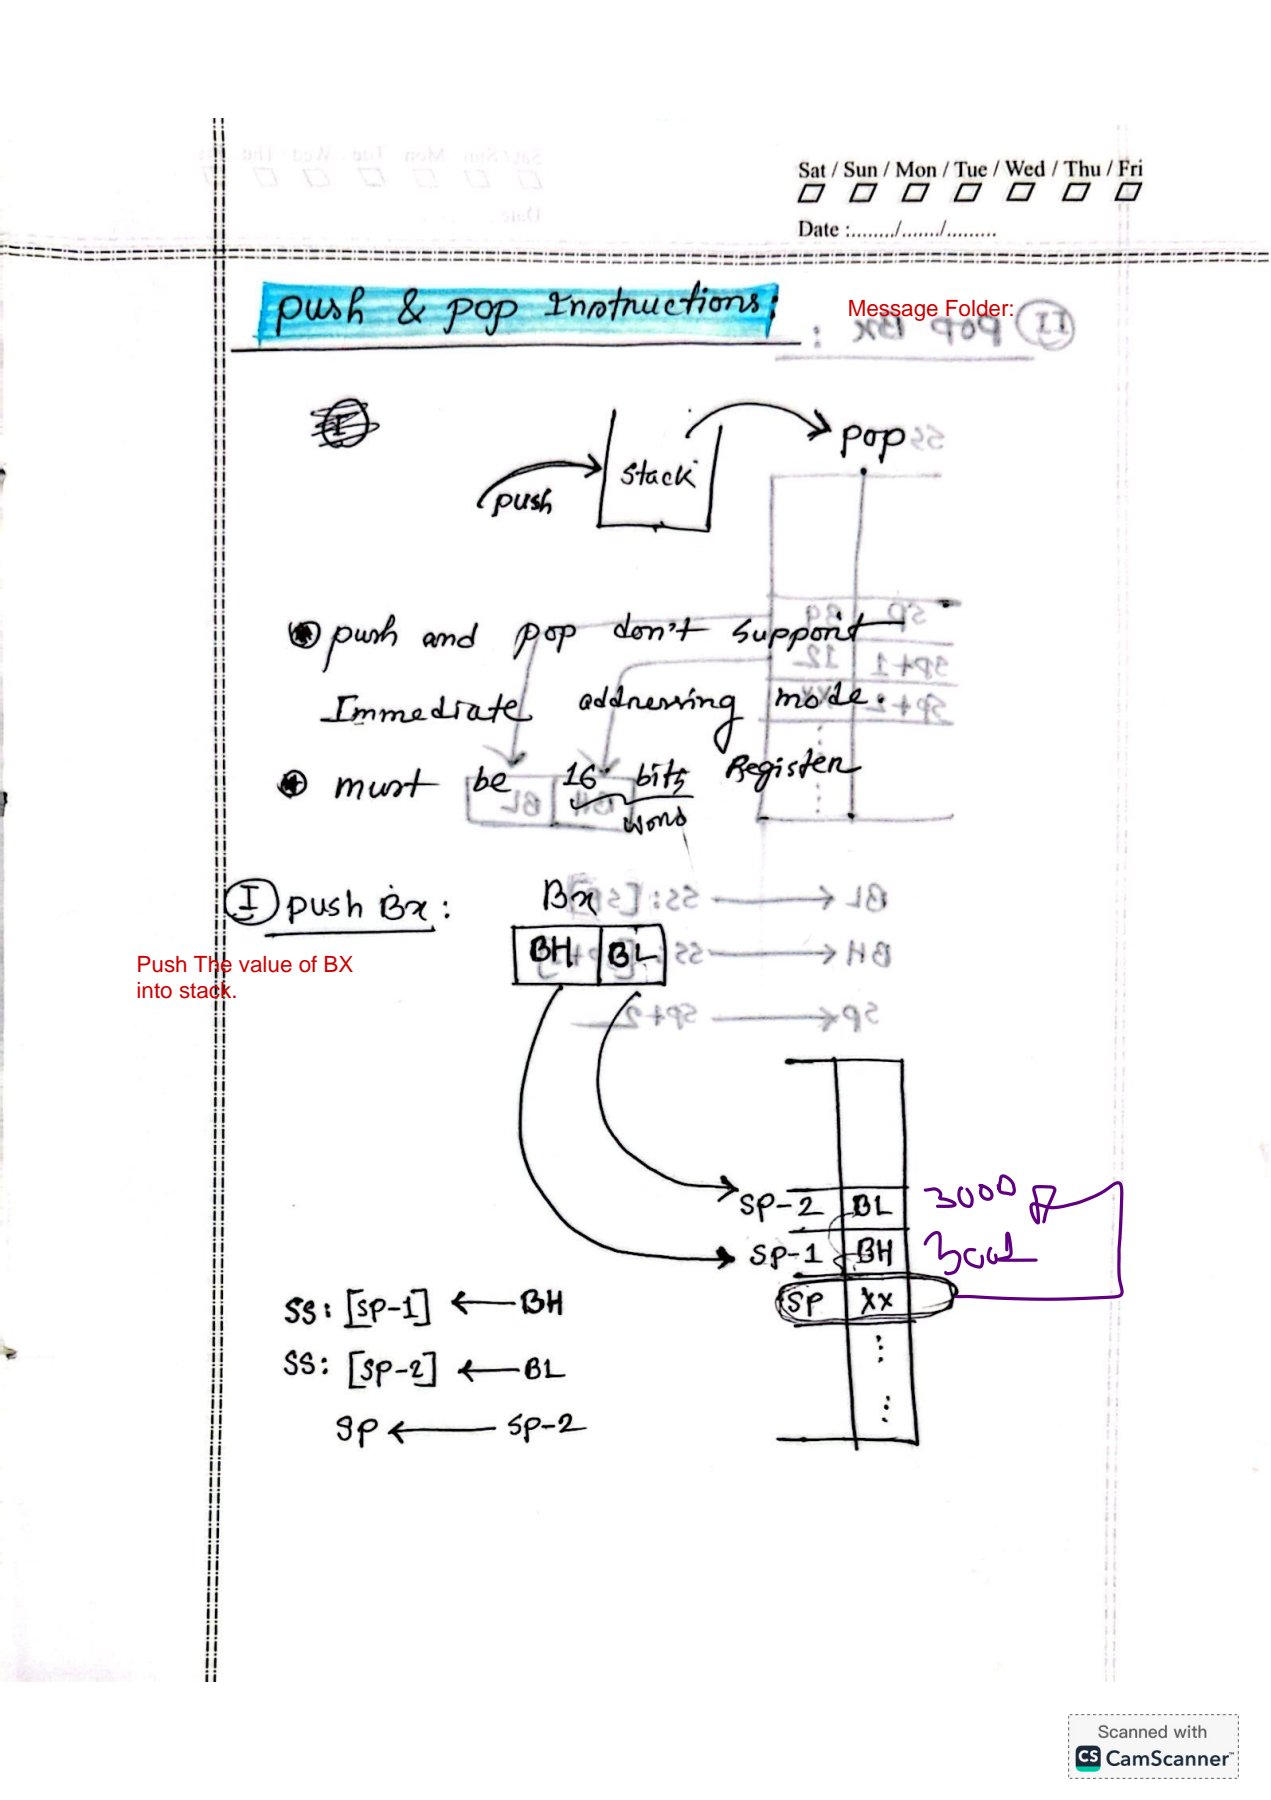 Sat / Sun / Mon / Tue / Wed / Thu / Fri
Date :......../......./.........
push & pop Instructions:
Message Folder:
II pop Bx :
I
stack
push
pop
push and pop don't support
Immediate addressing mode.
must be 16 bits Register
word
I push Bx :
Bx
BH BL
Push The value of BX
into stack.
SP-2 BL 3000
SP-1 BH 3001
SP xx
SS: [SP-1] ← BH
SS: [SP-2] ← BL
SP ← SP-2
Scanned with
CS CamScanner